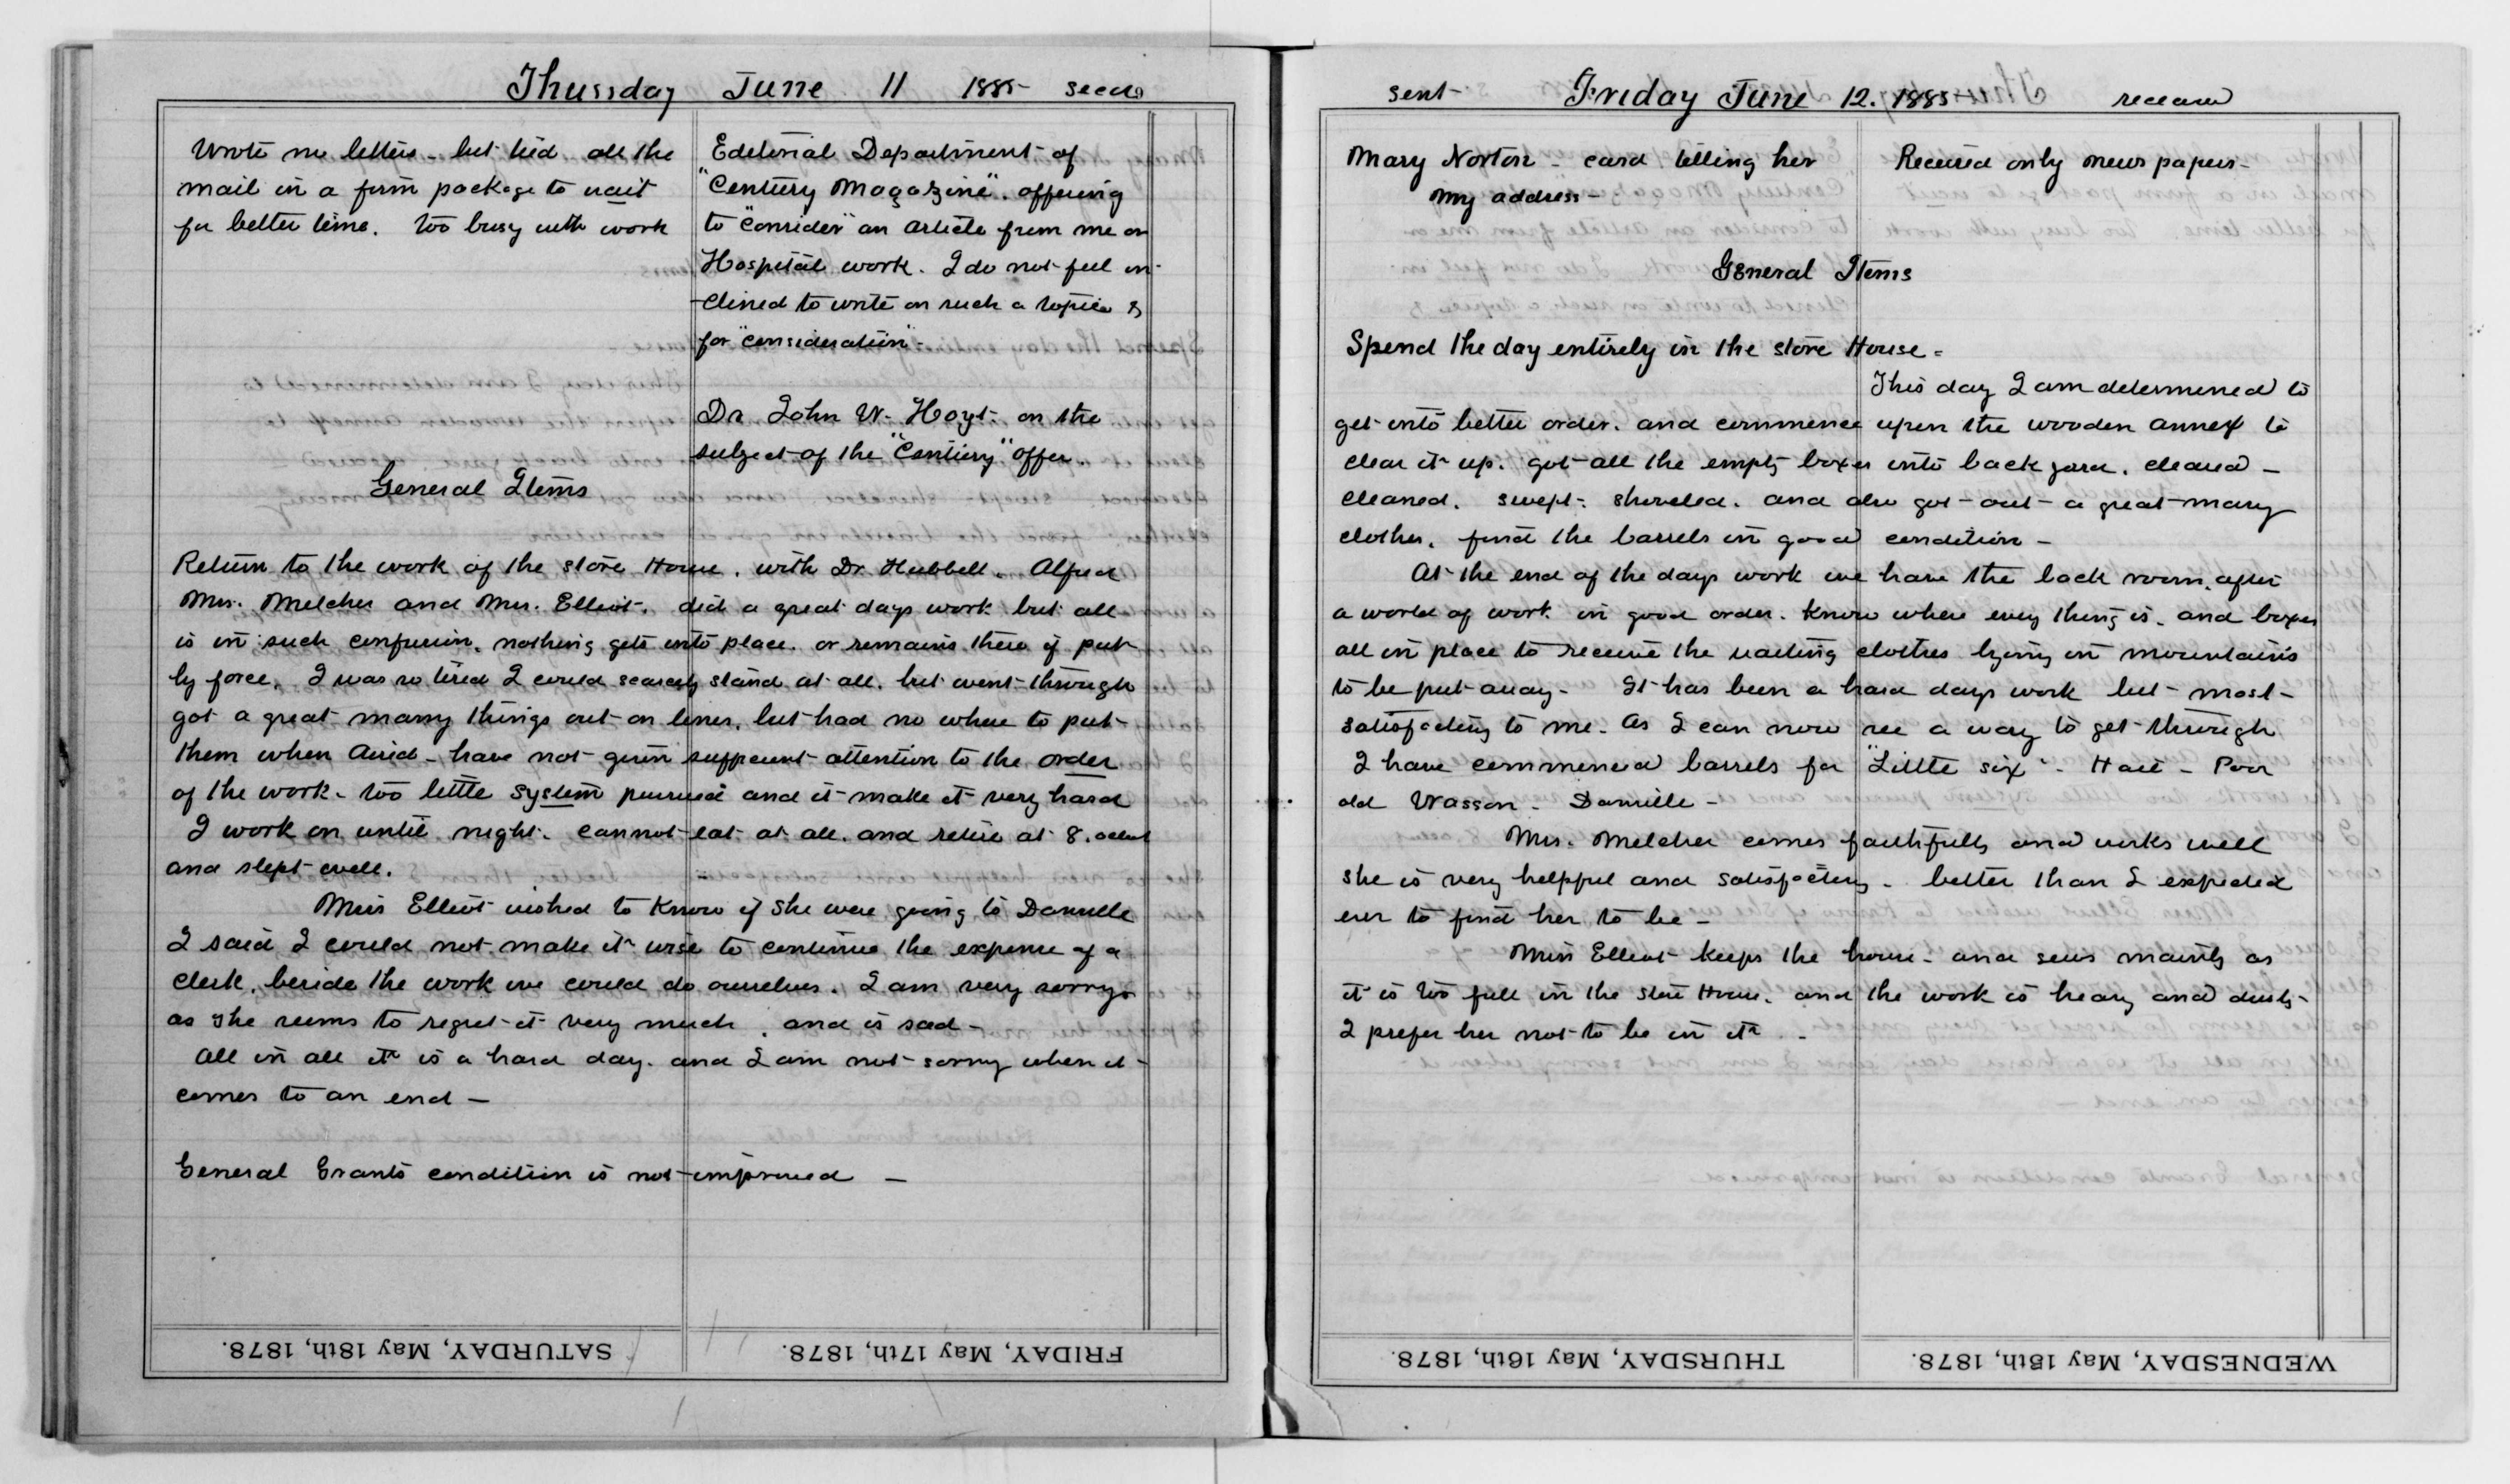 Thursday June 11 1885 recd
Wrote no letters - but tied all the
mail in a firm package to wait
for better time. too busy with work
Editorial Department of
"Century Magazine". offering
to "Consider" an article from me on
Hospital work. I do not feel in-
-clined to write on such a topic &
for "consideration"-
Dr. John W. Hoyt- on the
subject of the "Century" offer -
General Items
Return to the work of the store House. with Dr. Hubbell. Alfred
Mrs. Melcher and Mrs. Elliot. did a great days work but all
is in such confusion. nothing gets into place. or remains there if put
by force. I was so tired I could scarcely stand at all. but went through
got a great many things out on lines. but had no where to put
them when Aired - have not given sufficient attention to the order
of the work - too little system pursued and it make it very hard
I work on until night. cannot eat at all. and retire at 8. oclock
and slept well.
Miss Elliot wished to know if she were going to Danville
I said I could not make it wise to continue the expense of a
Clerk. beside the work we could do ourselves. I am very sorry
as she seems to regret it very much. and is sad -
All in all it is a hard day. and I am not sorry when it
comes to an end -
General Grants condition is not improved -
FRIDAY, May 17th, 1878.
SATURDAY, May 18th, 1878.
sent Friday June 12. 1885 received
Mary Norton - card telling her
my address -
Received only news papers -
General Items
Spend the day entirely in the store House -
This day I am determined to
get into better order. and commence upon the wooden annex to
clear it up. got all the empty boxes into back yard. cleared -
cleaned. swept - shoveled. and also got out a great many
clothes. find the barrels in good condition -
At the end of the days work we have the back room. after
a world of work in good order. know where every thing is. and boxes
all in place to receive the waiting clothes lying in mountains
to be put away - It has been a hard days work but most
satisfactory to me. As I can now see a way to get through
I have commenced barrels for "Little six" - - Poor
old Wasson - Danville -
Mrs. Melcher comes faithfully and works well
she is very helpful and satisfactory - better than I expected
ever to find her to be -
Miss Elliot keeps the house - and sews mainly as
it is too full in the store House. and the work is heavy and dusty -
I prefer her not to be in it -
WEDNESDAY, May 15th, 1878.
THURSDAY, May 16th, 1878.